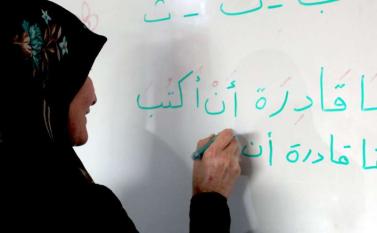 ب - ت - ث
نَا قَادِرَة أَنْ أَكتُب
نا قادرة أن